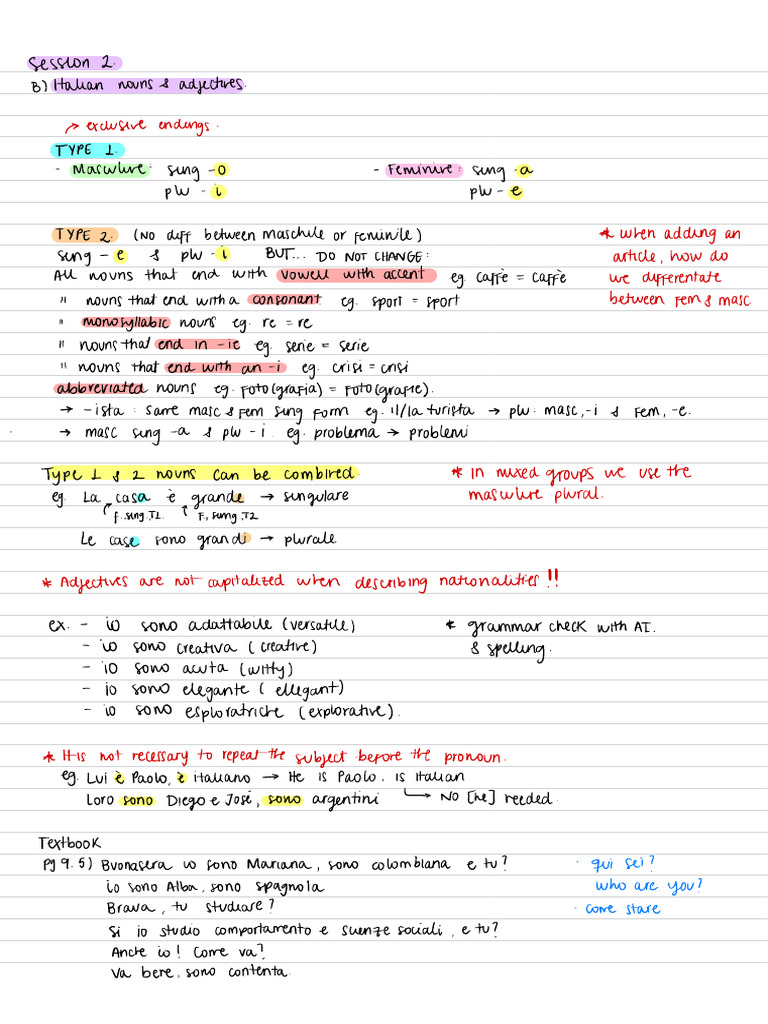 Session 2.
B) Italian nouns & adjectives.
→ exclusive endings.
TYPE 1.
- Masculine: sing - o
plu - i
- Feminine: sing - a
plu - e
TYPE 2. (No diff between maschile or feminile)
sing - e & plu - i BUT... DO NOT CHANGE:
* when adding an article, how do we differentate between fem & masc
All nouns that end with vowell with accent eg caffè = caffè
" nouns that end with a consonant eg. sport = sport
" monosyllabic nouns eg. re = re
" nouns that end in -ie eg. serie = serie
" nouns that end with an -i eg. crisi = crisi
abbreviated nouns eg. Foto(grafia) = Foto(grafie).
→ -ista: same masc & fem sing form eg. il/la turista → plu: masc, -i & fem, -e.
→ masc sing -a & plu -i. eg. problema → problemi
Type 1 & 2 nouns can be combined.
* In mixed groups we use the masculine plural.
eg. La casa è grande → singulare
f. sing. T1. F, sing, T2
Le case sono grandi → plurale
* Adjectives are not capitalized when describing nationalities!!
ex. - io sono adattabile (versatile)
- io sono creativa (creative)
- io sono acuta (witty)
- io sono elegante (ellegant)
- io sono esploratriche (explorative).
* grammar check with AI.
& spelling.
* It is not necessary to repeat the subject before the pronoun.
eg. Lui è Paolo, è italiano → He is Paolo. is Italian
Loro sono Diego e José, sono argentini ↳ NO [he] needed.
Textbook
pg 9. 5) Buonasera io sono Mariana, sono colombiana e tu?
io sono Alba, sono spagnola
Brava, tu studiare?
Si io studio comportamento e suenze sociali, e tu?
Anche io! Come va?
Va bene, sono contenta.
· qui sei?
who are you?
· come stare